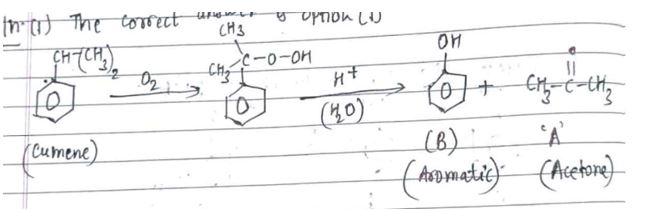 (1) The correct answer is option (1)
CH3
CH-(CH3)2 O2 CH3 C-O-OH H+ OH O
(H2O) + CH3-C-CH3
(Cumene) (B) 'A'
(Aromatic) (Acetone)